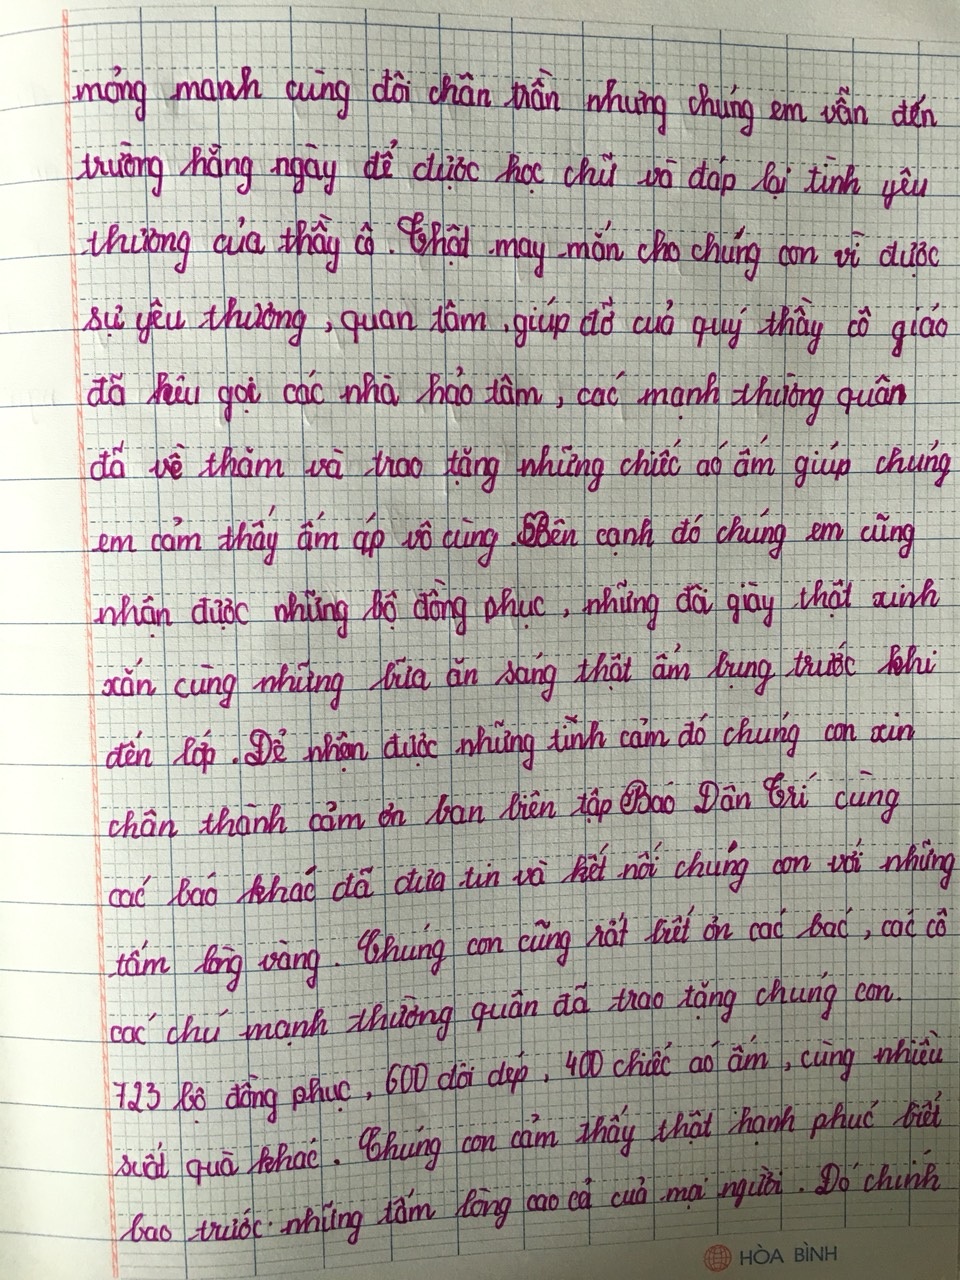 mỏng manh cùng đôi chân trần nhưng chúng em vẫn đến
trường hằng ngày để được học chữ và đáp lại tình yêu
thương của thầy cô. Thật may mắn cho chúng con vì được
sự yêu thương, quan tâm, giúp đỡ của quý thầy cô giáo
đã kêu gọi các nhà hảo tâm, các mạnh thường quân
đã về thăm và trao tặng những chiếc áo ấm giúp chúng
em cảm thấy ấm áp vô cùng. Bên cạnh đó chúng em cũng
nhận được những bộ đồng phục, những đôi giày thật xinh
xắn cùng những bữa ăn sáng thật ấm bụng trước khi
đến lớp. Để nhận được những tình cảm đó chúng con xin
chân thành cảm ơn ban biên tập Báo Dân Trí cùng
các báo khác đã đưa tin và kết nối chúng con với những
tấm lòng vàng. Chúng con cũng rất biết ơn các bác, các cô
các chú mạnh thường quân đã trao tặng chúng con.
723 bộ đồng phục, 600 đôi dép, 400 chiếc áo ấm, cùng nhiều
suất quà khác. Chúng con cảm thấy thật hạnh phúc biết
bao trước những tấm lòng cao cả của mọi người. Đó chính
HÒA BÌNH